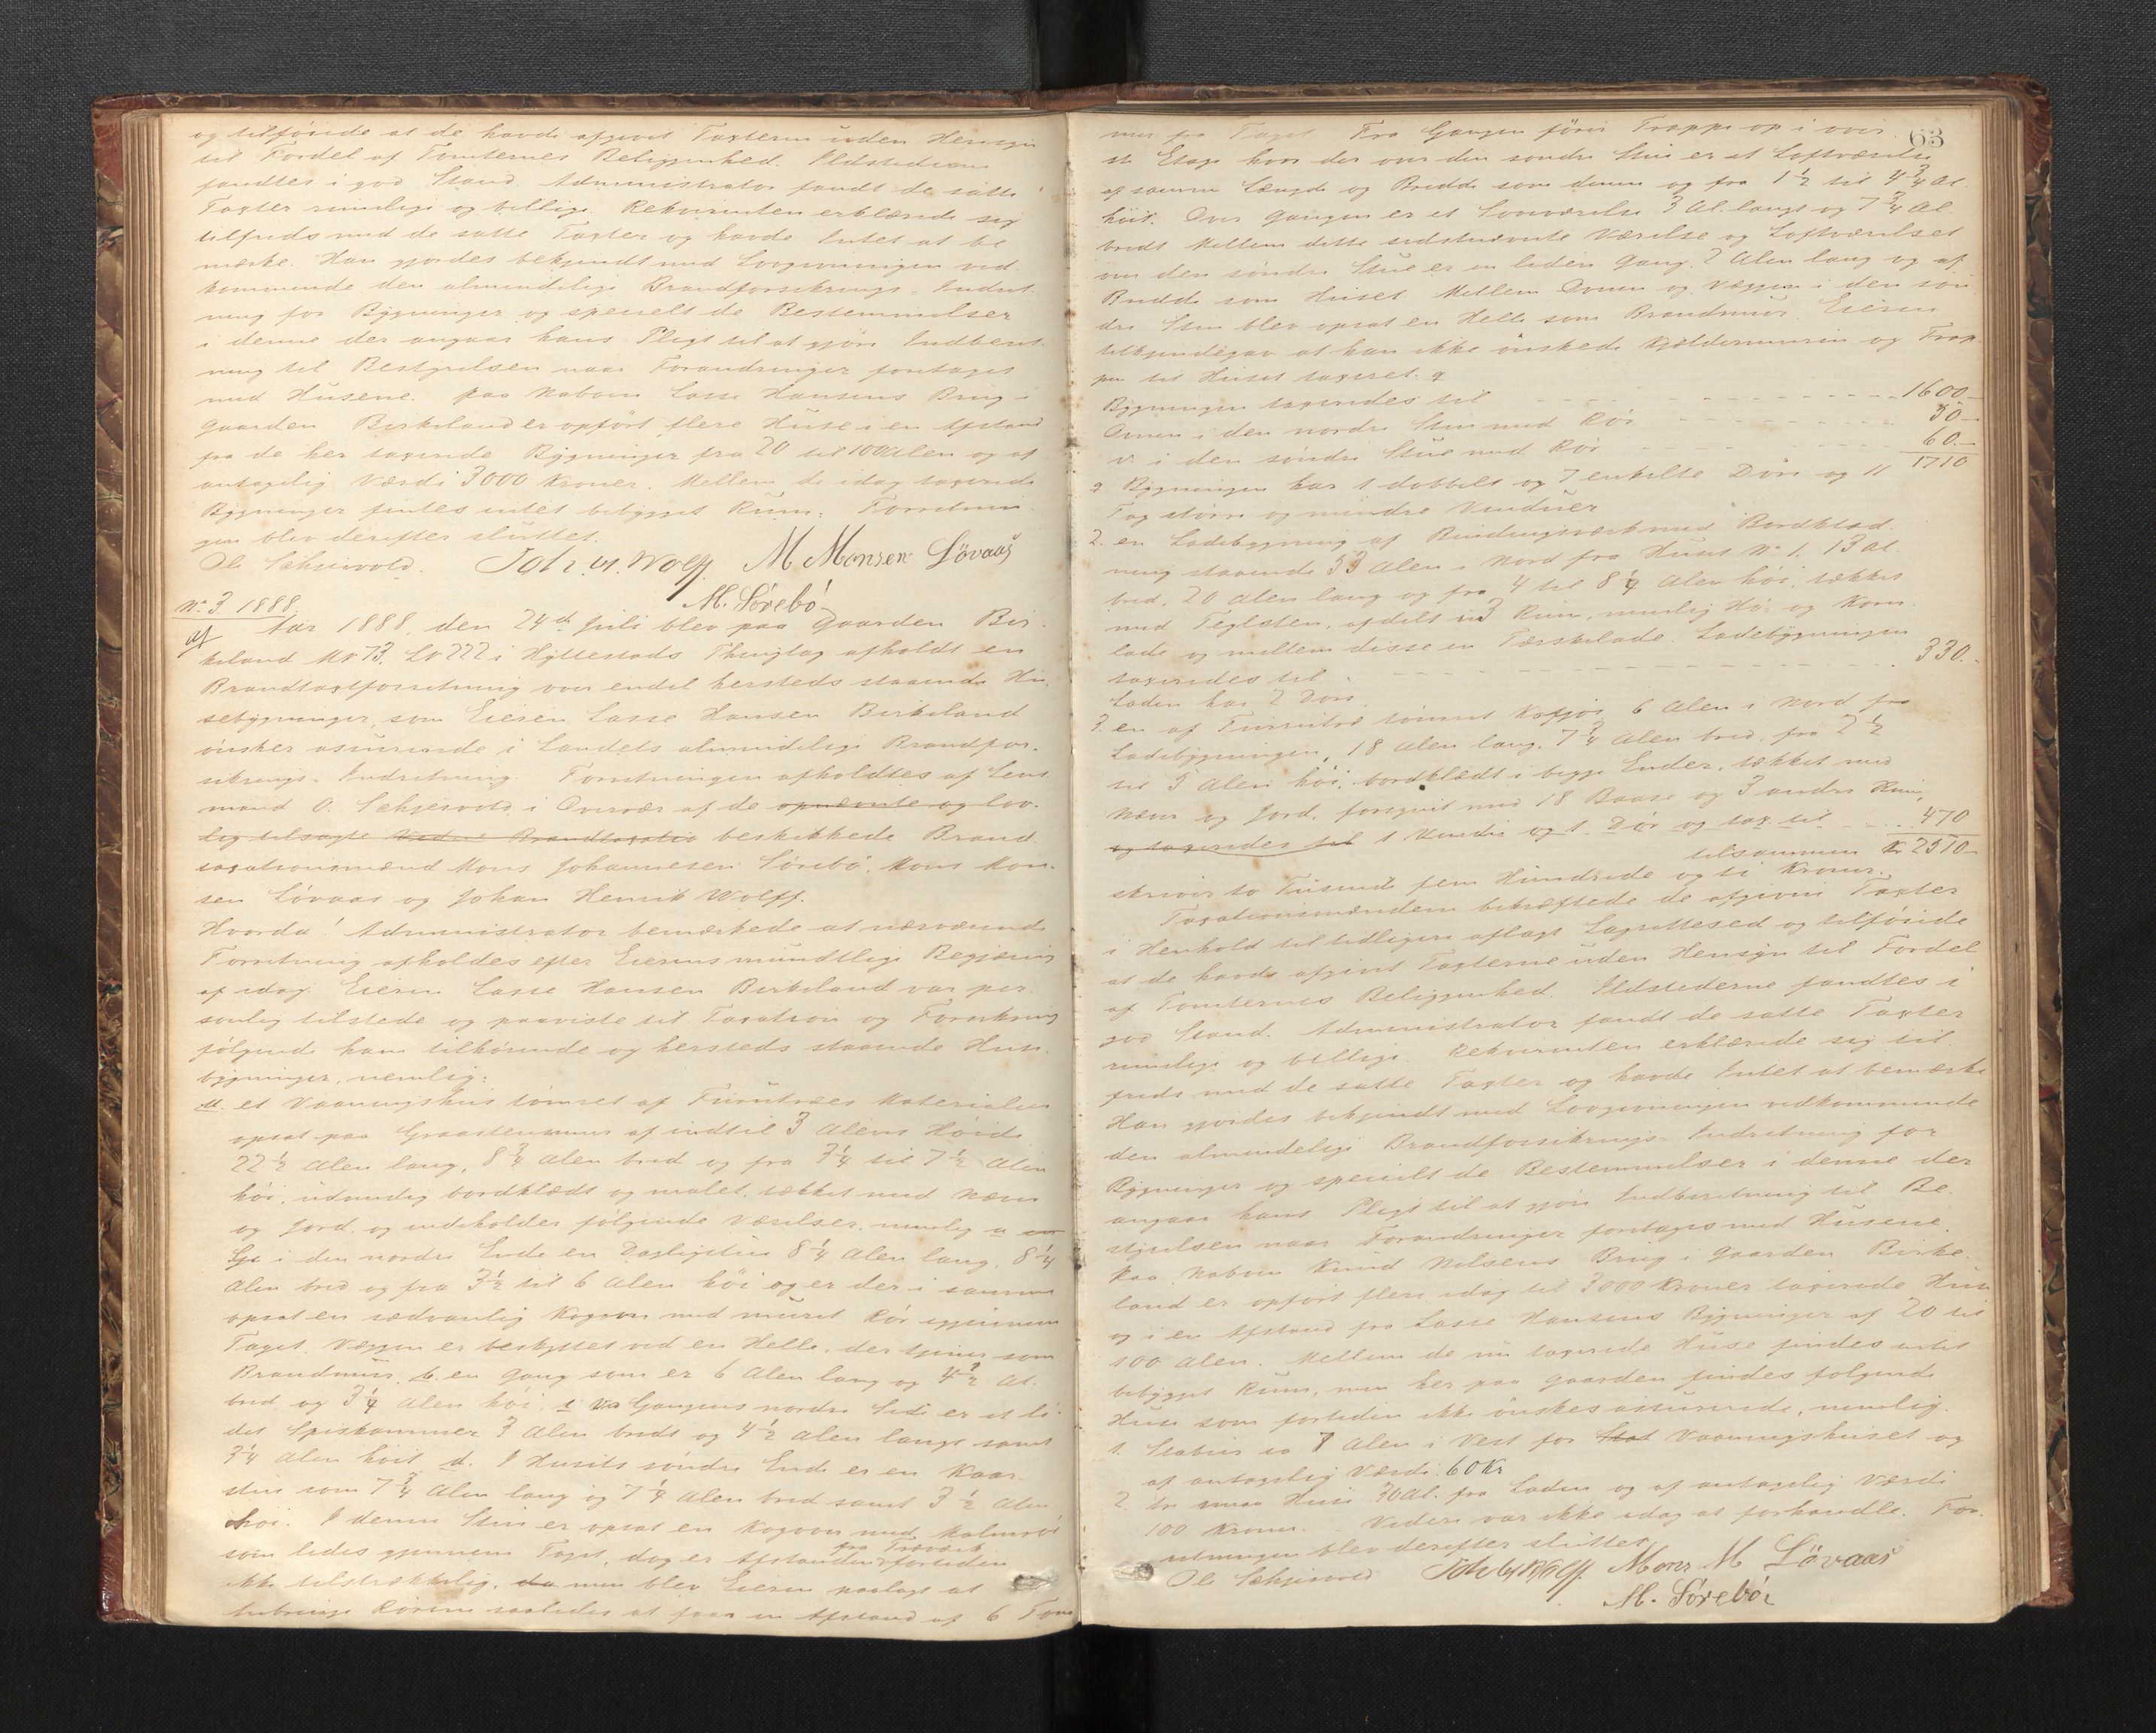 og tilføiede at de havde afgivet Taxterne uden Hensyn
til Fordel af Tomternes Beliggenhed. Ildstederne
fandtes i god Stand. Administrator fandt de satte
Taxter rimelige og billige. Rekvirenten erklærede sig
tilfreds med de satte Taxter og havde Intet at be
mærke. Han gjordes bekjendt med Lovgivningen ved
kommende den almindelige Brandforsikrings-Indret
ning for Bygninger og specielt de Bestemmelser
i denne der angaar hans Pligt til at gjøre Indberet
ning til Bestyrelsen naar Forandringer foretages
med Husene. Paa Naboen Lasse Hansens Brug i
Gaarden Birkeland er opført flere Huse i en Afstand
fra de her taxerede Bygninger fra 20 til 100 Alen og af
antagelig Værdi 3000 Kroner. Mellem de idag taxerede
Bygninger findes intet bebygget Rum. Forretnin
gen blev derefter sluttet.
Ole Sæhjersvold. Joh. H. Wolff. M Monsen Lövaas
M. Sörebö
No 3 1888.
Aar 1888, den 24de Juli blev paa Gaarden Bir
keland M No 73, L No 222 i Hyllestads Thinglag afholdt en
Brandtaxtforretning over endel hersteds staaende Hu
sebygninger, som Eieren Lasse Hansen Birkeland
ønsker assurerede i Landets almindelige Brandfor-
sikrings-Indretning. Forretningen afholdtes af Lens
mand O. Sæhjersvold i Overvær af de opnævnte og lov-
lig tilsagte Brandtaxatio beskikkede Brand
taxationsmænd Mons Johannesen Sørebø, Mons Mon-
sen Løvaas og Johan Henrik Wolff.
Hvorda! Administrator bemærkede at nærværende
Forretning afholdes efter Eierens mundtlige Begjæring
af idag. Eieren Lasse Hansen Birkeland var per
sonlig tilstede og paaviste til Taxation og Forsikring
følgende ham tilhørende og hersteds staaende Huse
bygninger, nemlig:
et Vaaningshus tømret af Furutræes Materialier
opsat paa Graastensmur af indtil 3 Alens Høide
22 1/2 Alen lang, 8 1/4 Alen bred og fra 3 1/4 til 7 1/2 Alen
høi, udvendig bordklædt og malet, tækket med Næver
og Jord og indeholder følgende Værelser, nemlig a
i den nordre Ende en Dagligstue 8 1/4 Alen lang, 8 1/4
Alen bred og fra 3 1/2 til 6 Alen høi og er der i samme
opsat en sædvanlig Kogovn med muret Rør igjennem
Taget. Væggen er beskyttet ved en Helle, der tjener som
Brandmur. b. en Gang som er 6 Alen lang og 4 1/2 Al.
bred og 3 1/4 Alen høi. c Ved Gangens nordre Side er et li
det Spiskammer 3 Alen bredt og 4 1/2 Alen langt samt
3 1/4 Alen høit. d. I Husets søndre Ende er en Kaar
stue som 7 3/4 Alen lang og 7 1/4 Alen bred samt 3 1/2 Alen
høi. I denne Stue er opsat en Kogovn med Malmrør
fra Træværk
som ledes gjennem Taget, dog er Afstanden fortiden
ikke tilstrækkelig, da men blev Eieren paalagt at
anbringe Rørene saaledes at faar en Afstand af 6 Tom
63
mer fra Taget. Fra Gangen fører Trappe op i øver
ste Etage hvor der over den søndre Stue er et Loftværelse
af samme Længde og Bredde som denne og fra 1 1/2 til 4 3/4 Al.
høit. Over Gangen er et Soveværelse 3 Al. langt og 7 3/4 Al.
bredt. Mellem dette sidstnævnte Værelse og Loftværelset
over den søndre Stue er en liden Gang, 2 Alen lang og af
Bredde som Huset. Mellem Ovnen og Væggen i den søn
dre Stue blev opsat en Helle som Brandmur. Eieren
tilkjendegav at han ikke ønskede Kjældermuren og Trap
pen til Huset taxeret.
Bygningen taxeredes til 1600.-
Ovnen i den nordre Stue med Rør 50-
v. i den søndre Stue med Rør 60.-
1710
Bygningen har 1 dobbelt og 7 enkelte Døre og 11
Fag større og mindre Vinduer
2. en Ladebygning af Bindingsværk med Bordklæd
ning staaende 33 Alen i Nord fra Huset No 1, 13 Al.
bred, 20 Alen lang og fra 4 til 8 1/4 Alen høi, tækket
med Teglsten, afdelt i 3 Rum, nemlig Hø- og Korn
lade og mellem disse en Tærskelade. Ladebygningen
taxeredes til 330.-
Laden har 2 Døre
3. en af Furutræ tømret Kofjøs 6 Alen i Nord fra
Ladebygningen, 18 Alen lang, 7 3/4 Alen bred, fra 2 1/2
til 5 Alen høi, bordklædt i begge Ender, tækket med
Næver og Jord, forsynet med 18 Baase og 3 andre Rum,
og taxeredes til 1 Vindu og 1 Dør og tax. til 470
tilsammen Kr 2510-
skriver to Tusind fem Hundrede og ti Kroner.
Taxationsmændene bekræftede de afgivne Taxter
i Henhold til tidligere aflagt Lagrettesed og tilføiede
at de havde afgivet Taxterne uden Hensyn til Fordel
af Tomternes Beliggenhed. Ildstederne fandtes i
god Stand. Administrator fandt de satte Taxter
rimelige og billige. Rekvirenten erklærede sig til
freds med de satte Taxter og havde Intet at bemærke
Han gjordes bekjendt med Lovgivningen vedkommende
den almindelige Brandforsikrings-Indretning for
Bygninger og specielt de Bestemmelser i denne der
angaar hans Pligt til at gjøre Indberetning til Be
styrelsen naar Forandringer foretages med Husene.
Paa Naboen Knud Nilsens Brug i Gaarden Birke
land er opført flere idag til 3000 Kroner taxerede Huse
og i en Afstand fra Lasse Hansens Bygninger af 20 til
100 Alen. Mellem de nu taxerede Huse findes intet
bebygget Rum, men her paa Gaarden findes følgende
Huse som fortiden ikke ønskes assurerede, nemlig.
1. Stabur ca 7 Alen i Vest for Vaaningshuset og
af antagelig Værdi 60 Kr
2. tre smaa Huse 70 Al. fra Laden og af antagelig Værdi
100 Kroner. Videre var ikke idag at forhandle. For
retningen blev derefter sluttet
Ole Sæhjersvold Joh. H. Wolff. Mons M Lövaas
M. Sörebö